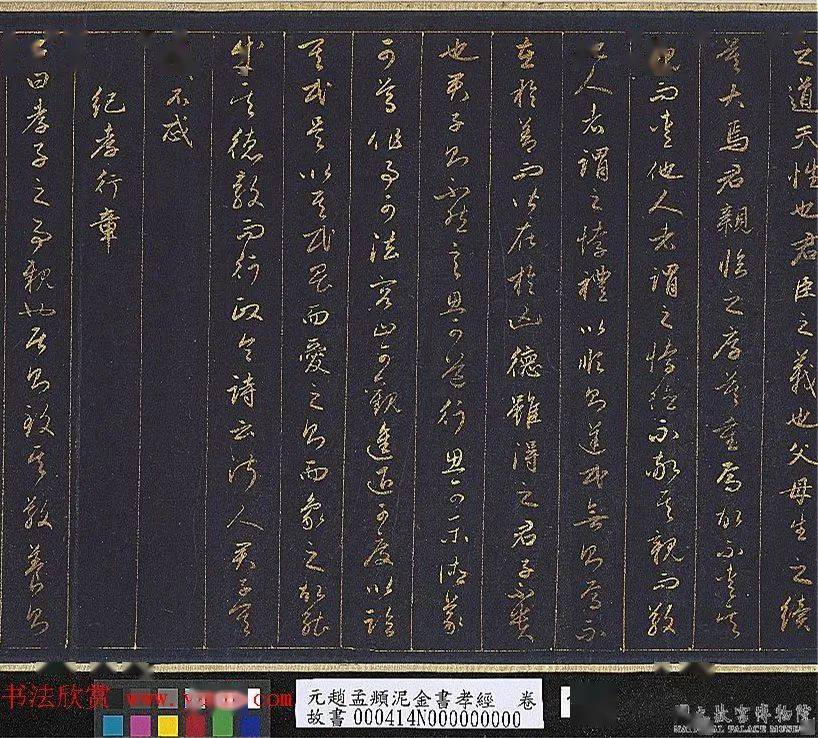 之道天性也君臣之義也父母生之續
莫大焉君親臨之厚莫重焉故不愛其
親而愛他人者謂之悖德不敬其親而敬
人者謂之悖禮以順則逆民無則焉不
在於善而皆在於凶德雖得之君子不貴
也君子則不然言思可道行思可樂德義
可尊作事可法容止可觀進退可度以臨
其民是以其民畏而愛之則而象之故能
成其德教而行政令詩云淑人君子其
不忒
紀孝行章
曰孝子之事親也居則致其敬養則
书法欣赏
元趙孟頫泥金書孝經 卷
故書000414N000000000
國立故宮博物院
NATIONAL PALACE MUSEUM